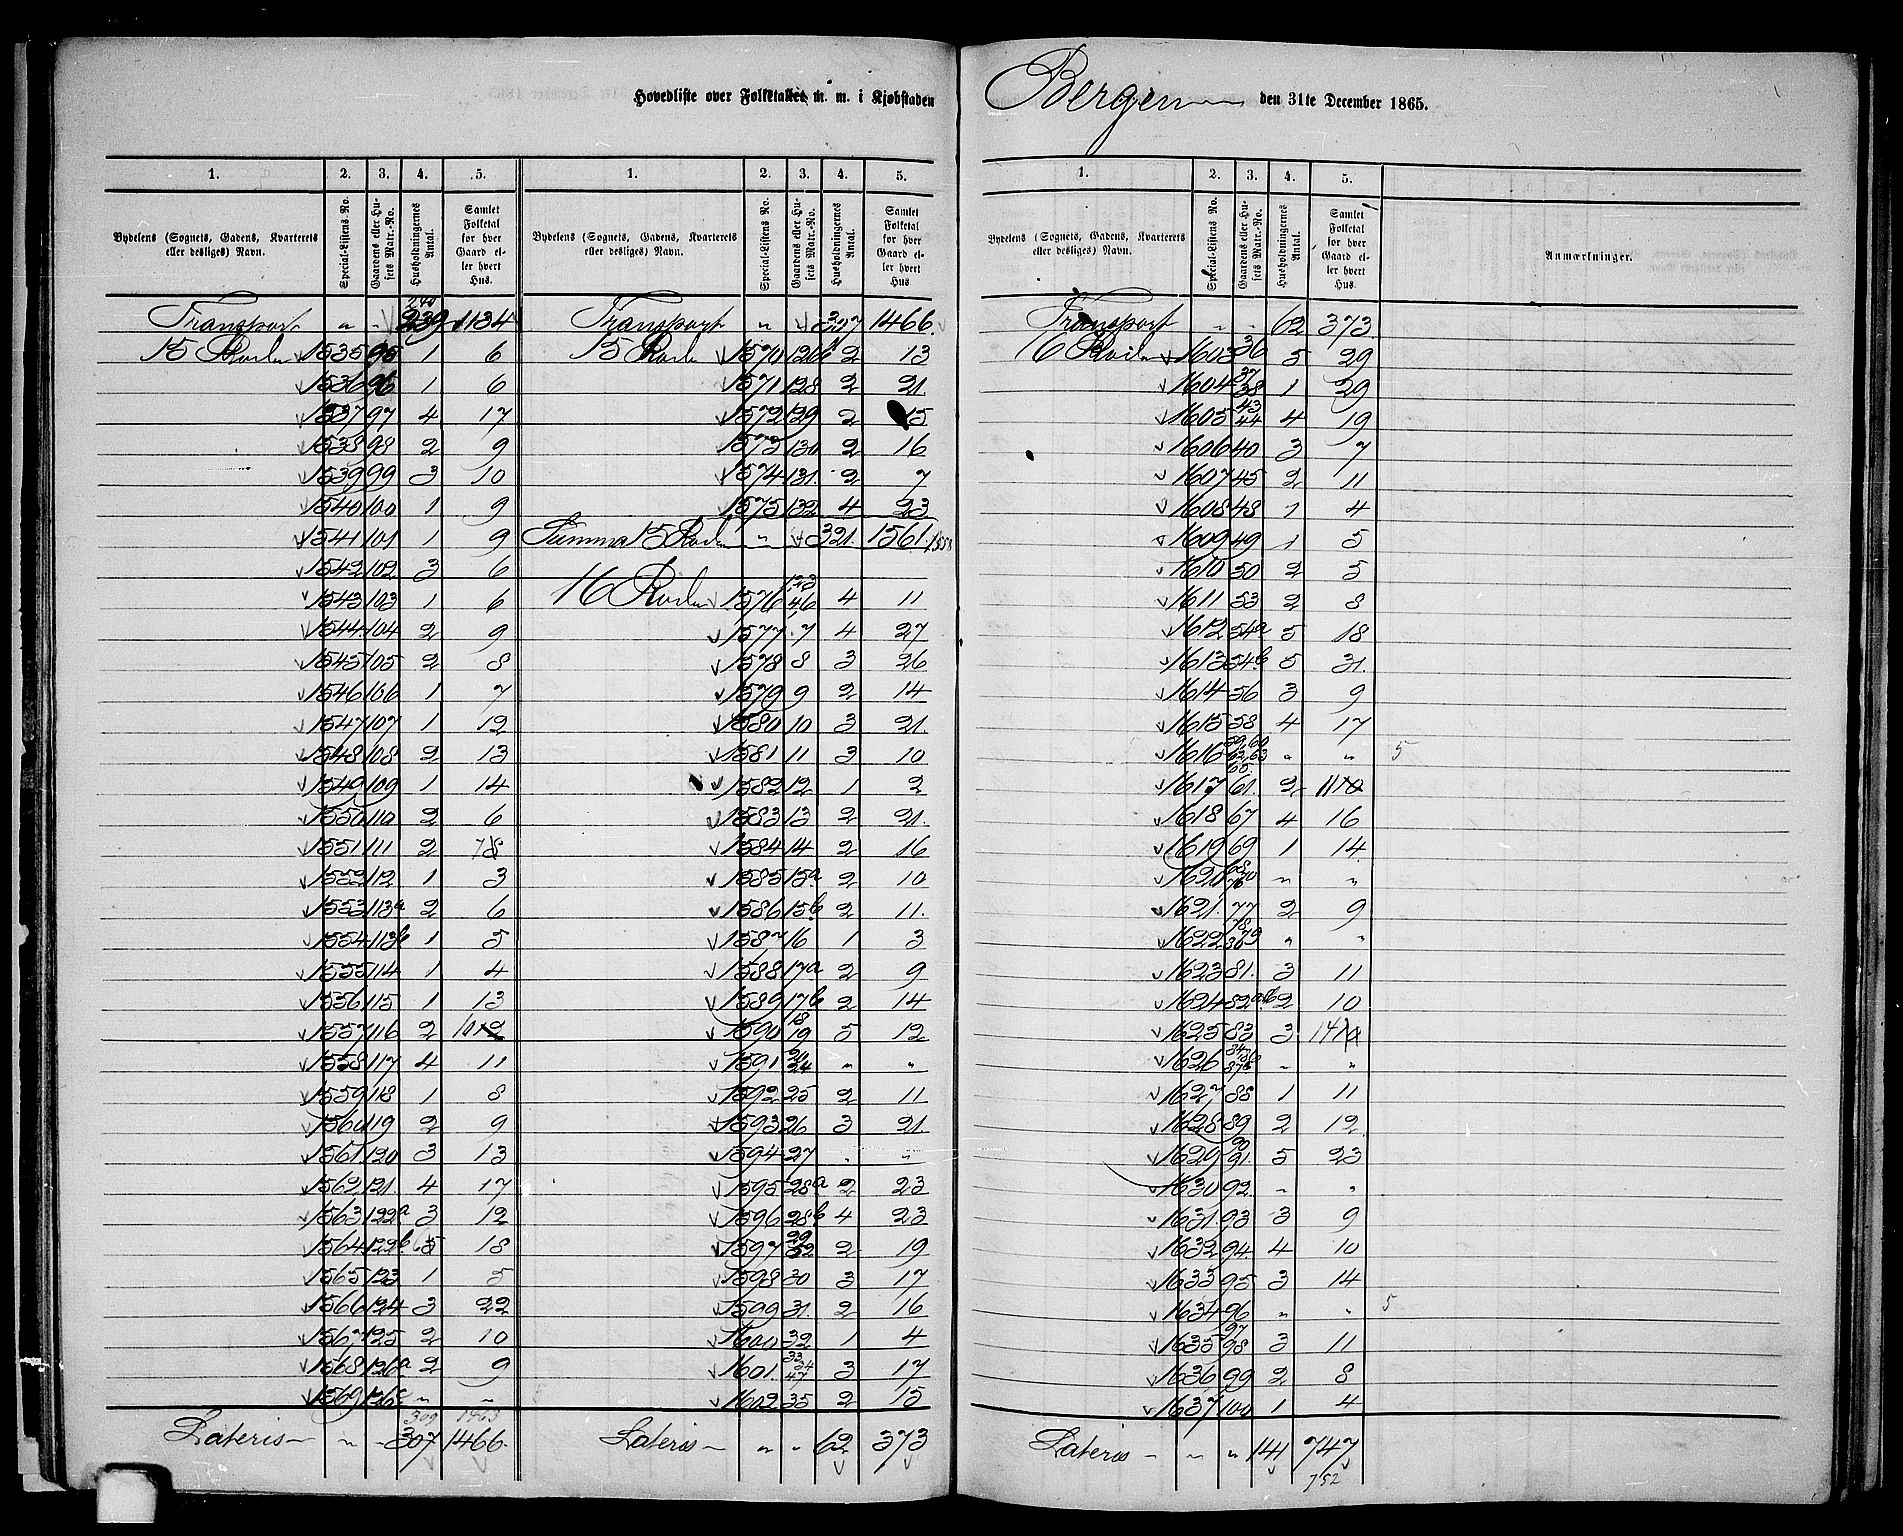 Hovedliste over Folketallet m. m. i Kjøbstaden Bergen den 31te December 1865.
1. 2. 3. 4. 5.
Bydelens (Sognets, Gadens, Kvarterets eller desliges) Navn. Special-Listens No. Gaardens eller Husets Matr.-No. Husholdningernes Antal. Samlet Folketal for hver Gaard eller hvert Hus.
240
Transport " " 239 1134
15 Rode 1535 95 1 6
1536 96 1 6
1537 97 4 17
1538 98 2 9
1539 99 3 10
1540 100 1 9
1541 101 1 9
1542 102 3 6
1543 103 1 6
1544 104 2 9
1545 105 2 8
1546 106 1 7
1547 107 1 12
1548 108 2 13
1549 109 1 14
1550 110 2 6
1551 111 2 78
1552 112 1 3
1553 113a 2 6
1554 113b 1 5
1555 114 1 4
1556 115 1 13
1557 116 2 10 12
1558 117 4 11
1559 118 1 8
1560 119 2 9
1561 120 3 13
1562 121. 4 17
1563 122a 3 12
1564 122b 5 18
1565 123 1 5
1566 124 3 22
1567 125 2 10
1568 126a 2 9
1569 126c " "
309 1463
Lateris " " 307 1466.
1. 2. 3. 4. 5.
Bydelens (Sognets, Gadens, Kvarterets eller desliges) Navn. Special-Listens No. Gaardens eller Husets Matr.-No. Husholdningernes Antal. Samlet Folketal for hver Gaard eller hvert Hus
Transport " 307 1466.
15 Rode 1570 126b 2 13
1571 128 2 21.
1572 129 2 15
1573 130 2 16
1574 131. 2 7
1575 132 4 23
Summa 15 Rode " " 321. 1561. 1558
16 Rode 1576 1,2,3 4,6 4 11
1577 7 4 27
1578 8 3 26
1579 9 2 14
1580 10 3 21.
1581 11 3 10
1582 12 1 2
1583 13 2 21.
1584 14 2 16
1585 15a 2 10
1586 15b 2 11.
1587 16 1 3
1588 17a 2 9
1589 17b 2 14
1590 18 19 5 12
1591 20 24 " "
1592 25 2 11
1593 26 3 21
1594 27 " "
1595 28a 2 23
1596 28b 4 23
1597 29 52 2 19
1598 30 3 17
1599 31. 2 16
1600 32 1 4
1601. 33 34 47 3 17
1602 35 2 15
Lateris " " 62 373
1. 2. 3. 4. 5.
Bydelens (Sognets, Gadens, Kvarterets eller desliges) Navn. Special-Listens No. Gaardens eller Husets Matr.-No. Husholdningernes Antal. Samlet Folketal for hver Gaard eller hvert Hus. Anmærkninger.
Transport " " 62 373.
16 Rode 1603 36 5 29
1604 37 38 1 29
1605 43 44 4 19
1606 40 3 7
1607 45 2 11
1608 48 1 4
1609 49 1 5
1610 50 2 5
1611 53 2 8
1612 54a 5 18
1613 54b 5 31.
1614 56 3 9
1615 58 4 17
1616 59,60 62,63 65 " " 5
1617 61. 2 11
1618 67 4 16
1619 69 1 14
1620 " "
1621. 77 2 9
1622 78 79 80 " "
1623 81. 3 11
1624 82ab 2 10
1625 83 3 14
1626 " "
1627 88 1 11
1628 89 2 12
1629 90 91. 5 23
1630 92. " "
1631 93 3 9
1632 94. 4 10
1633 95 3 14
1634 96 " " 5
1635 97 98 3 11
1636 99 2 8
1637 100 1 4
Lateris " " " 141 747
752